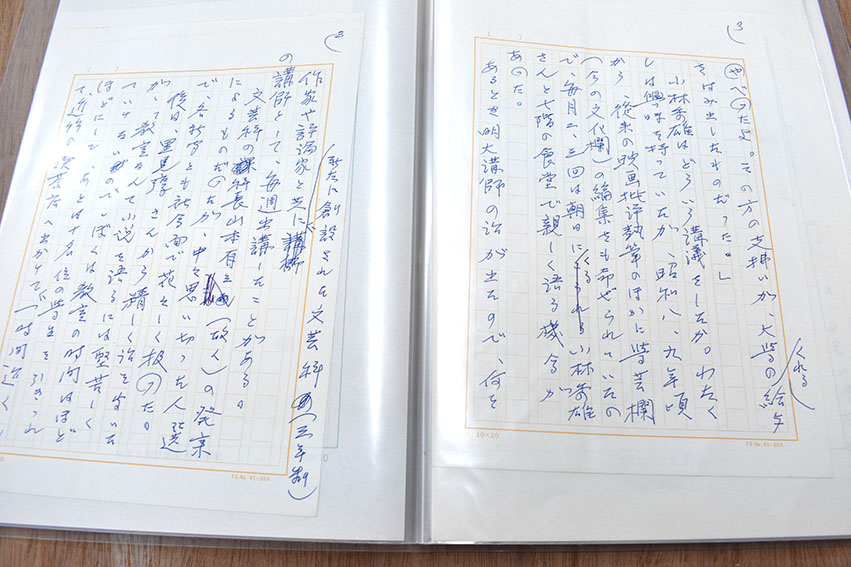 2
新たに創設された文芸科(三年制)
作家や評論家と共に
の講師として、毎週出講したことがある。
文芸科の科長山本有三(故人)の発案
によるものだったが、中々思い切った人選
で、各新聞とも社会面で花々しく扱った。
後日、里見弴さんから親しく話を伺った
が、「教室なんて小説を語るには堅苦しく
ていけないのでぼくは教室の時間はほど
ほどにして、あとは十名位の学生を引きつれ
て、近くの喫茶店へ出かけて、一時間近く
3
べったよ。その方の支払いが、大学の給与
くれる
をはみ出したものだった。」
小林秀雄はどういう講義をしたか。わたく
しは興味を持っていたが、昭和八、九年頃
から、従来の映画批評執筆のほかに学芸欄
(今の文化欄)の編集をも命ぜられていたの
で、毎月二、三回は朝日にくる小林秀雄
さんと七階の食堂で親しく語る機会が
あった。
あるとき明大講師の話が出たので、何を
20×20